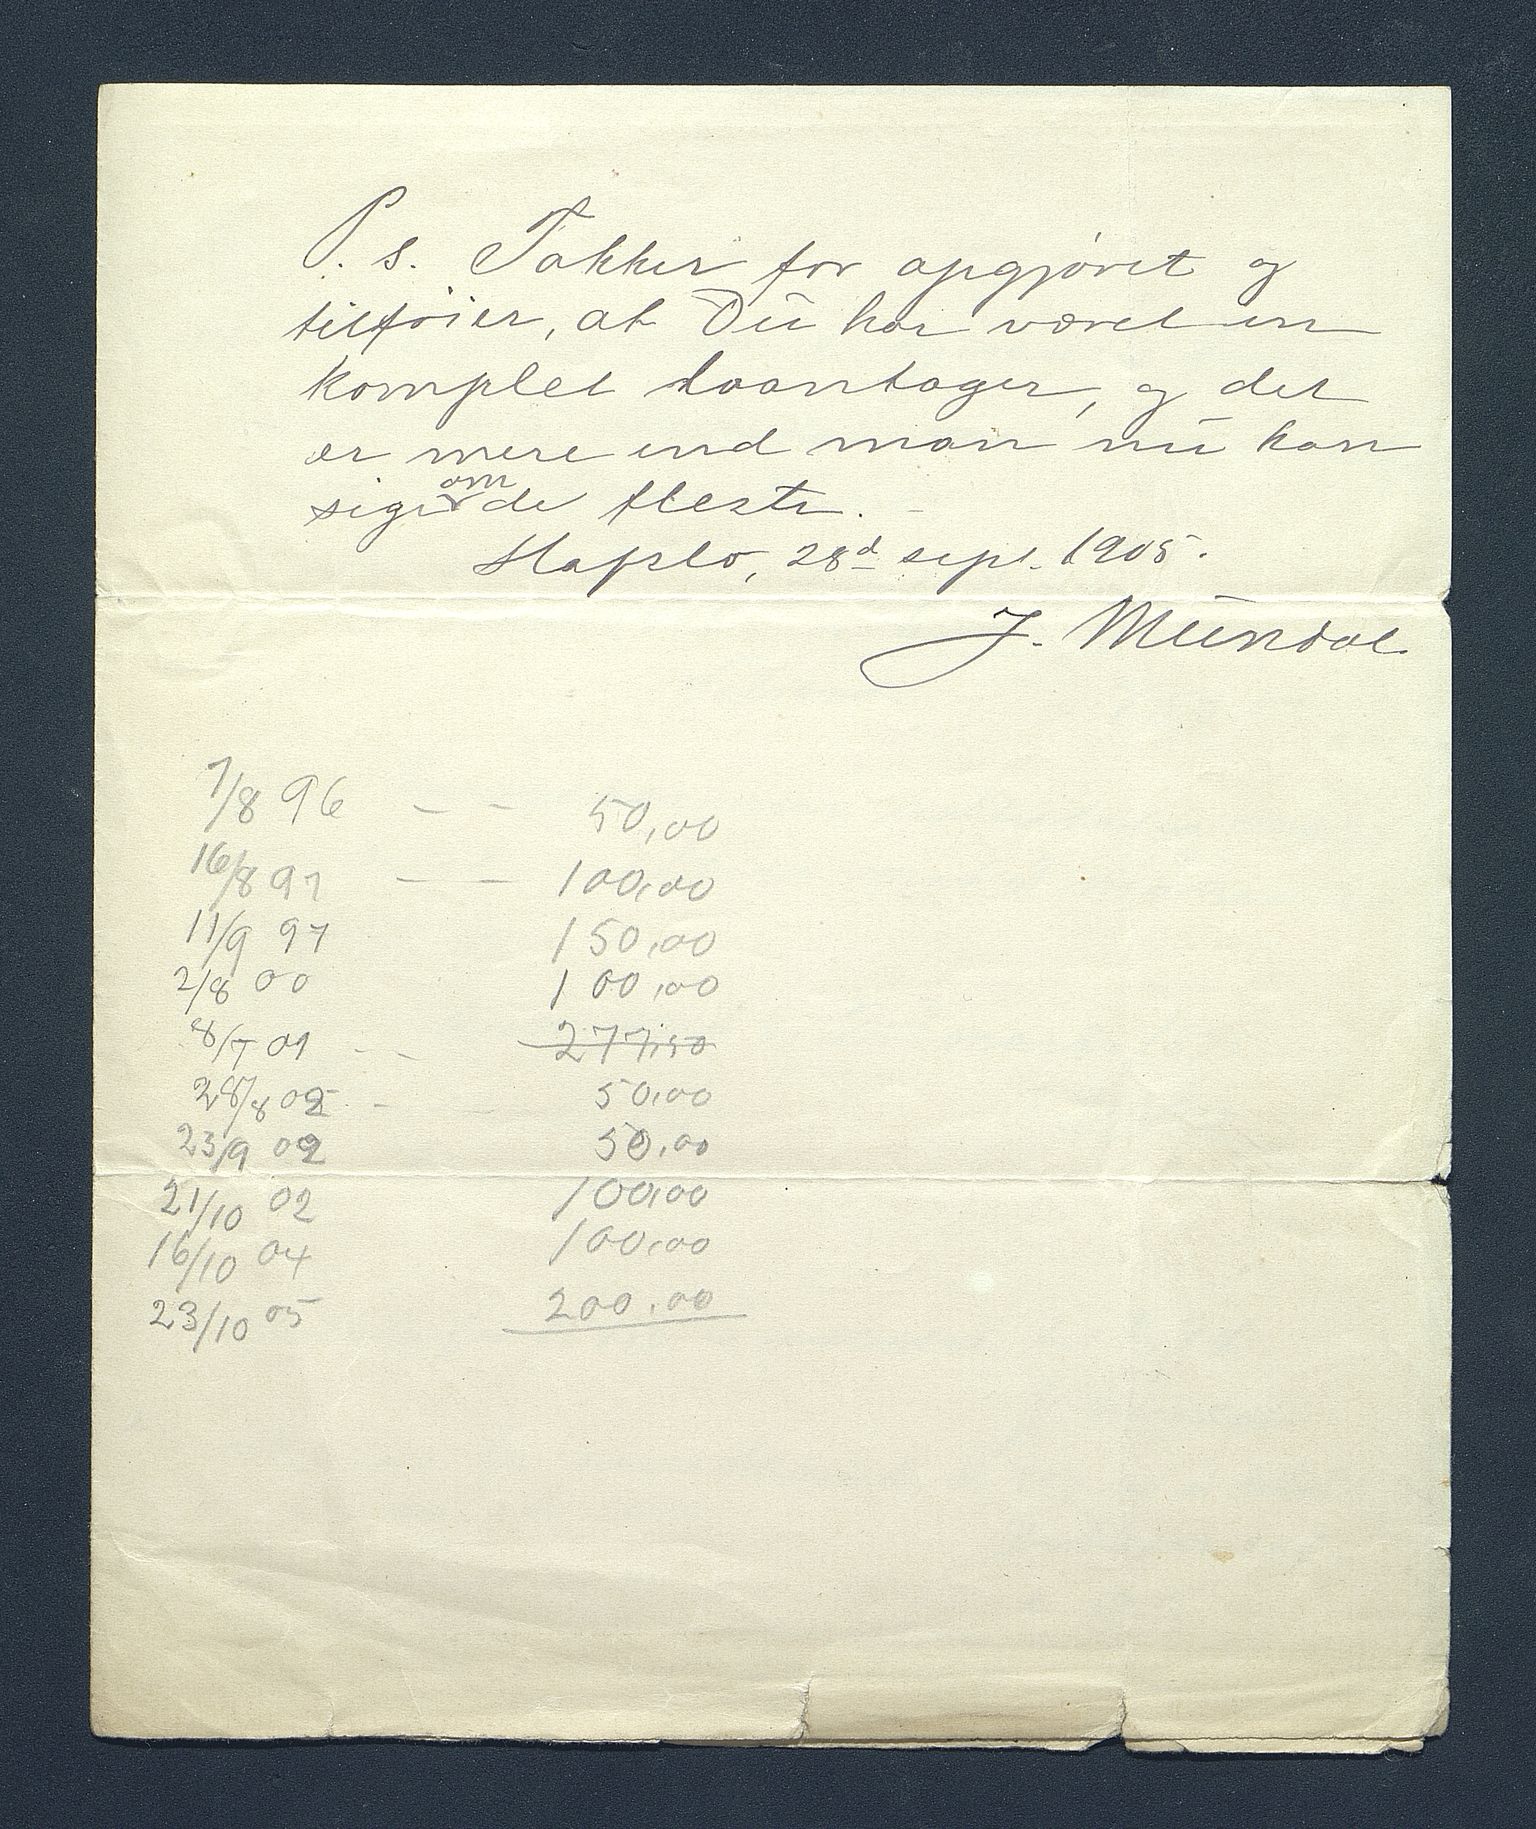 P. s. Takker for opgjøret og
tilføier, at Du har været en
komplet laantager, og det
er mere end man nu kan
sige om de fleste.
Hafslo, 28d sept. 1905.
J. Mundal
7/8 96 — — 50,00
16/8 97 — — 100,00
11/9 97 150,00
2/8 00 100,00
8/7 01 - - 277,50
28/8 02 - 50,00
23/9 02 50,00
21/10 02 100,00
16/10 04 100,00
23/10 05 200.00